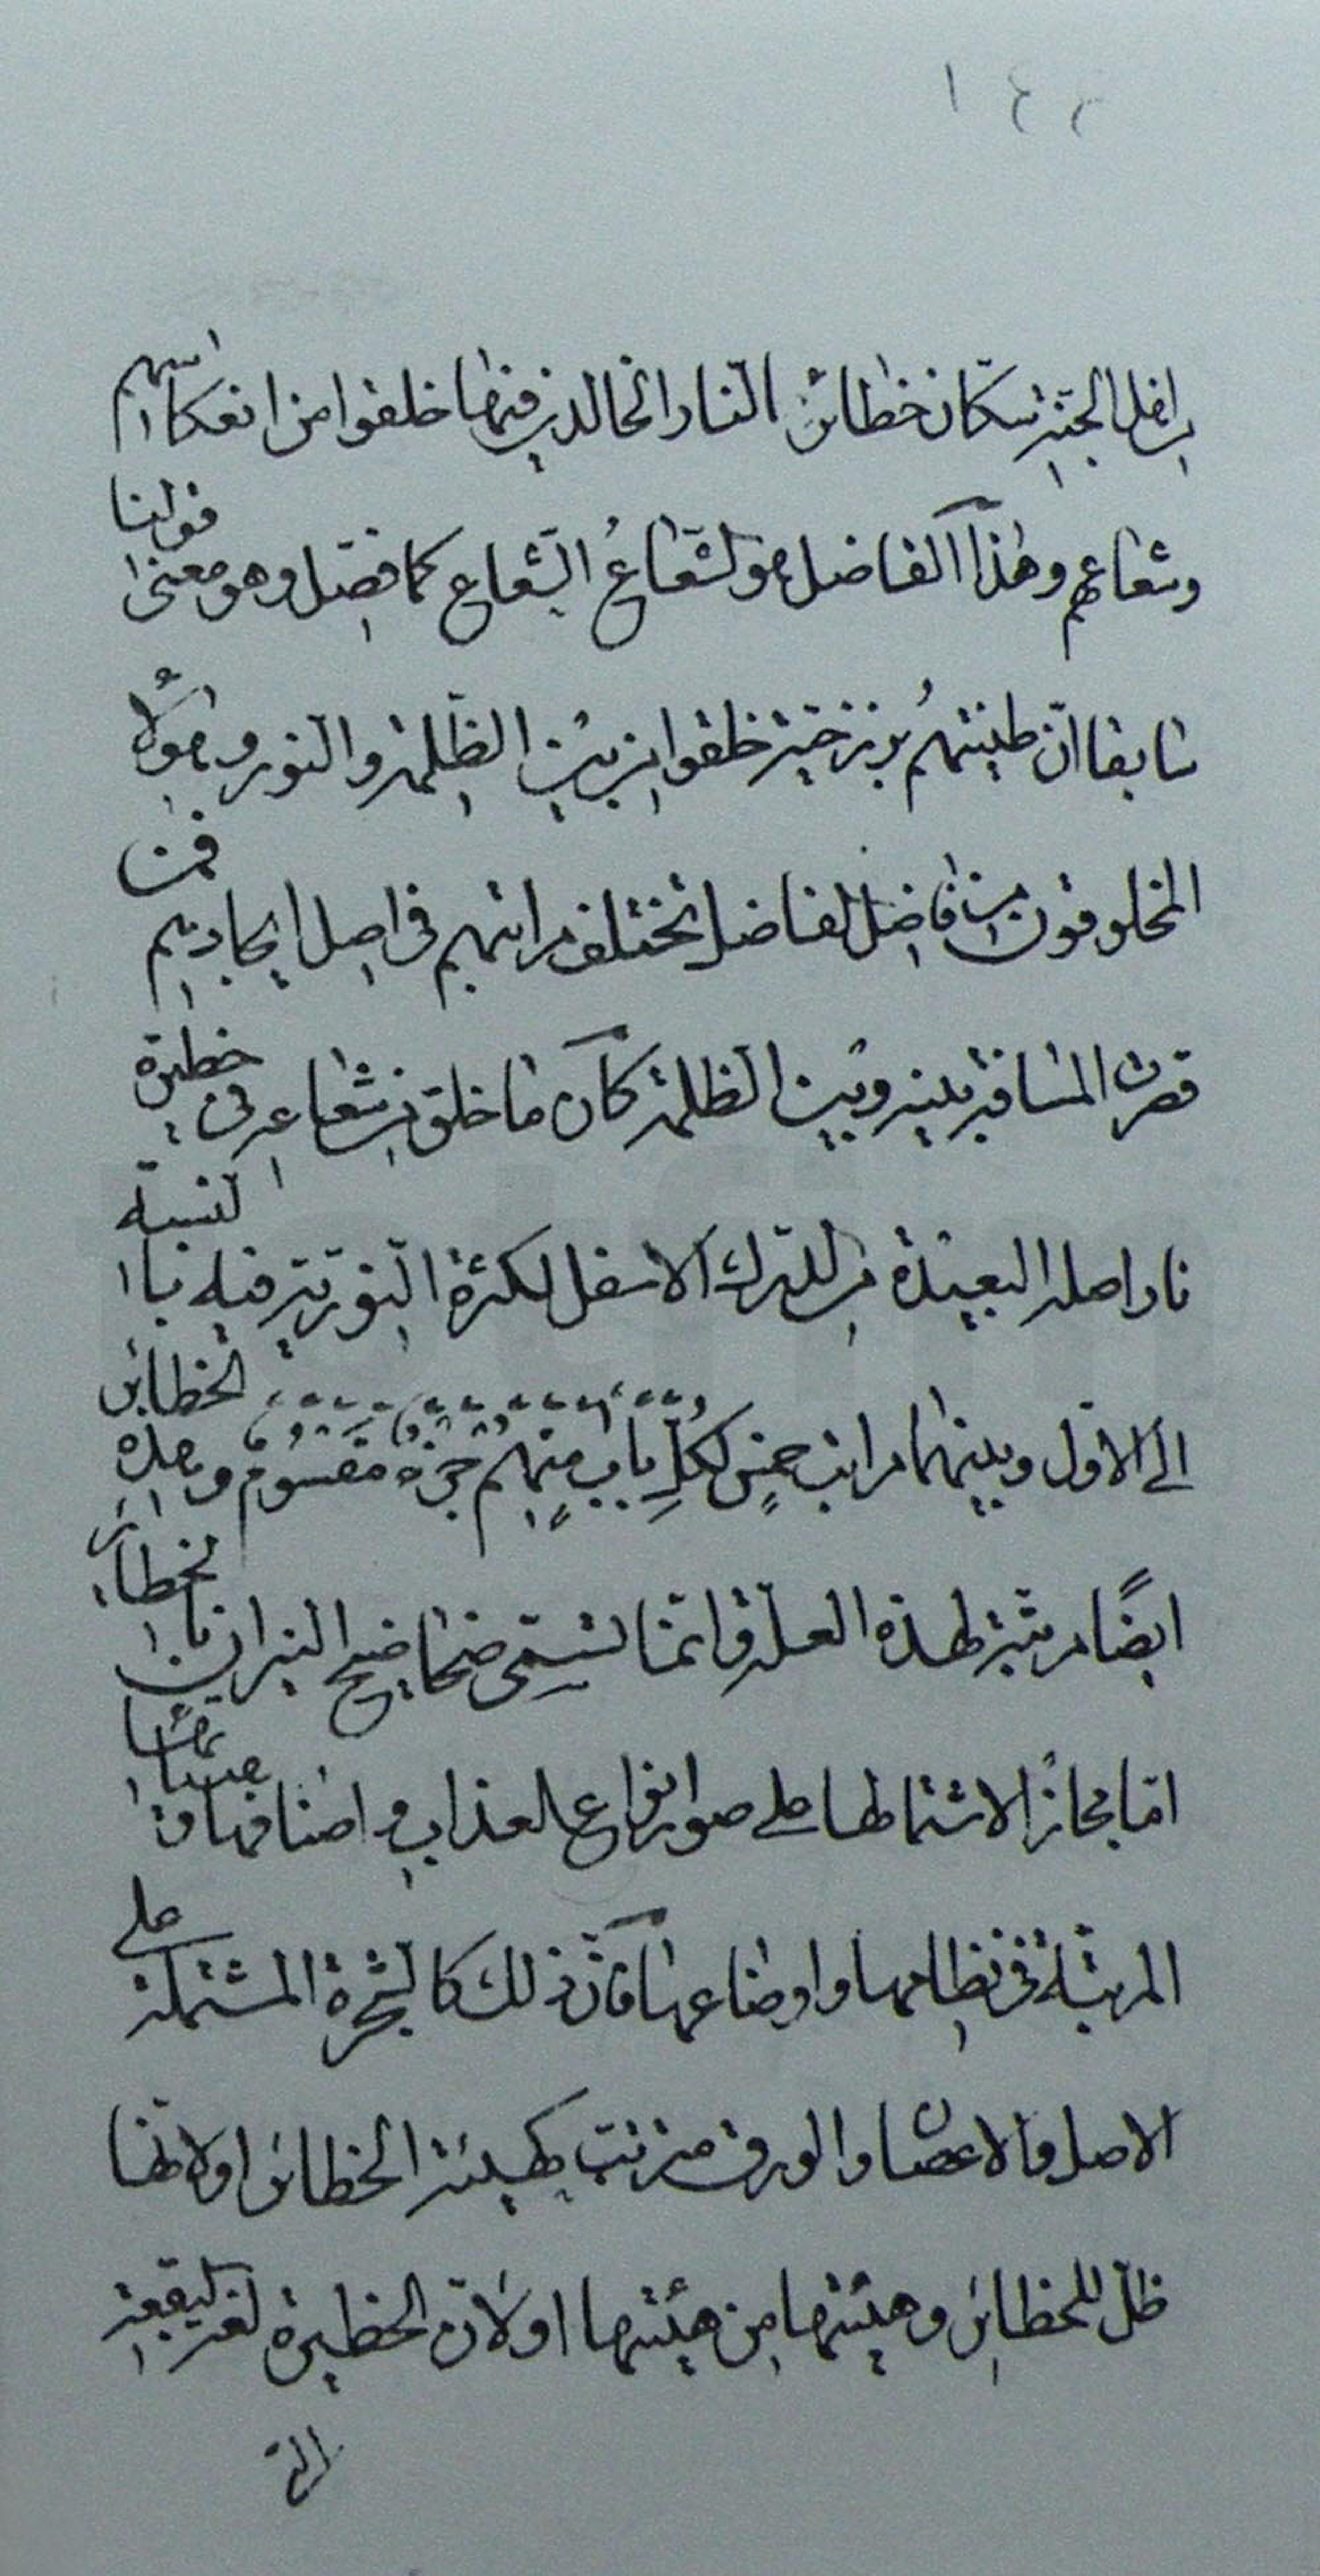 ١٤٢
اهل الجنة سكان حظائر النار الخالدين فيها خلقوا من انعكاسهم
وشعاعهم وهذا الفاضل هو لشعاع الشعاع كما فصل وهو معنى قولنا
سابقا ان طينتهم برزخية خلقوا من بين الظلمة والنور وهؤلاء
المخلوقون من فاضل الفاضل تختلف مراتبهم في اصل ايجادهم فمن
قصرت المسافة بينه وبين الظلمة كان ما خلق من شعاعه في حظيرة
نار اصله البعيدة من الدرك الاسفل لكثرة النورية فيه بالنسبة
الى الاول وبينهما مراتب خمس لكل باب منهم جزء مقسوم وهذه الحظائر
ايضا مرتبة لهذه العلة وانما تسمى ضحاضيح النيران بالحظائر
اما مجازا لاشتمالها على صور انواع العذاب واصنافها وهيئاتها
المرتبة في نظامها واوضاعها فان ذلك كالشجرة المشتملة على
الاصل والاغصان والورق مترتب كهيئة الحظائر اولانها
ظل للحظائر وهيئتها من هيئتها اولان الحظيرة لغة لبقعة
التي